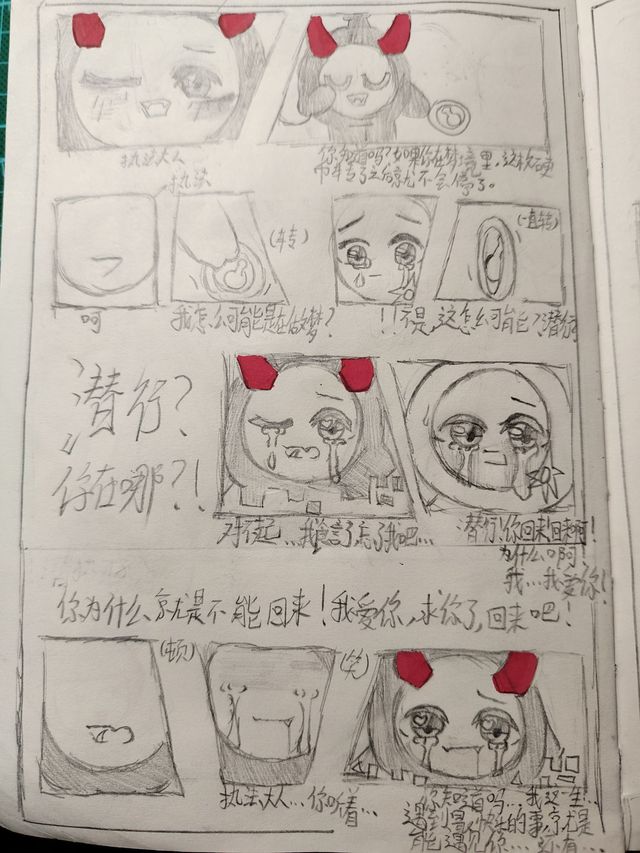 执法大人
执法
你知道吗？如果你在梦境里，这枚硬
币转了之后就不会停了。
(转)
(一直转)
呵
我怎么可能是在做梦？
！！不是，这怎么可能？潜行
潜行？
你在哪？！
对不起…我食言了忘了我吧…
潜行！你回来！回来啊！
为什么啊！
我…我爱你！
你为什么就是不能回来！我爱你，求你了，回来吧！
(顿)
(笑)
执法大人…你听着…
你知道吗…我这一生…
遇到最快乐的事，就是
能遇见你…还有…